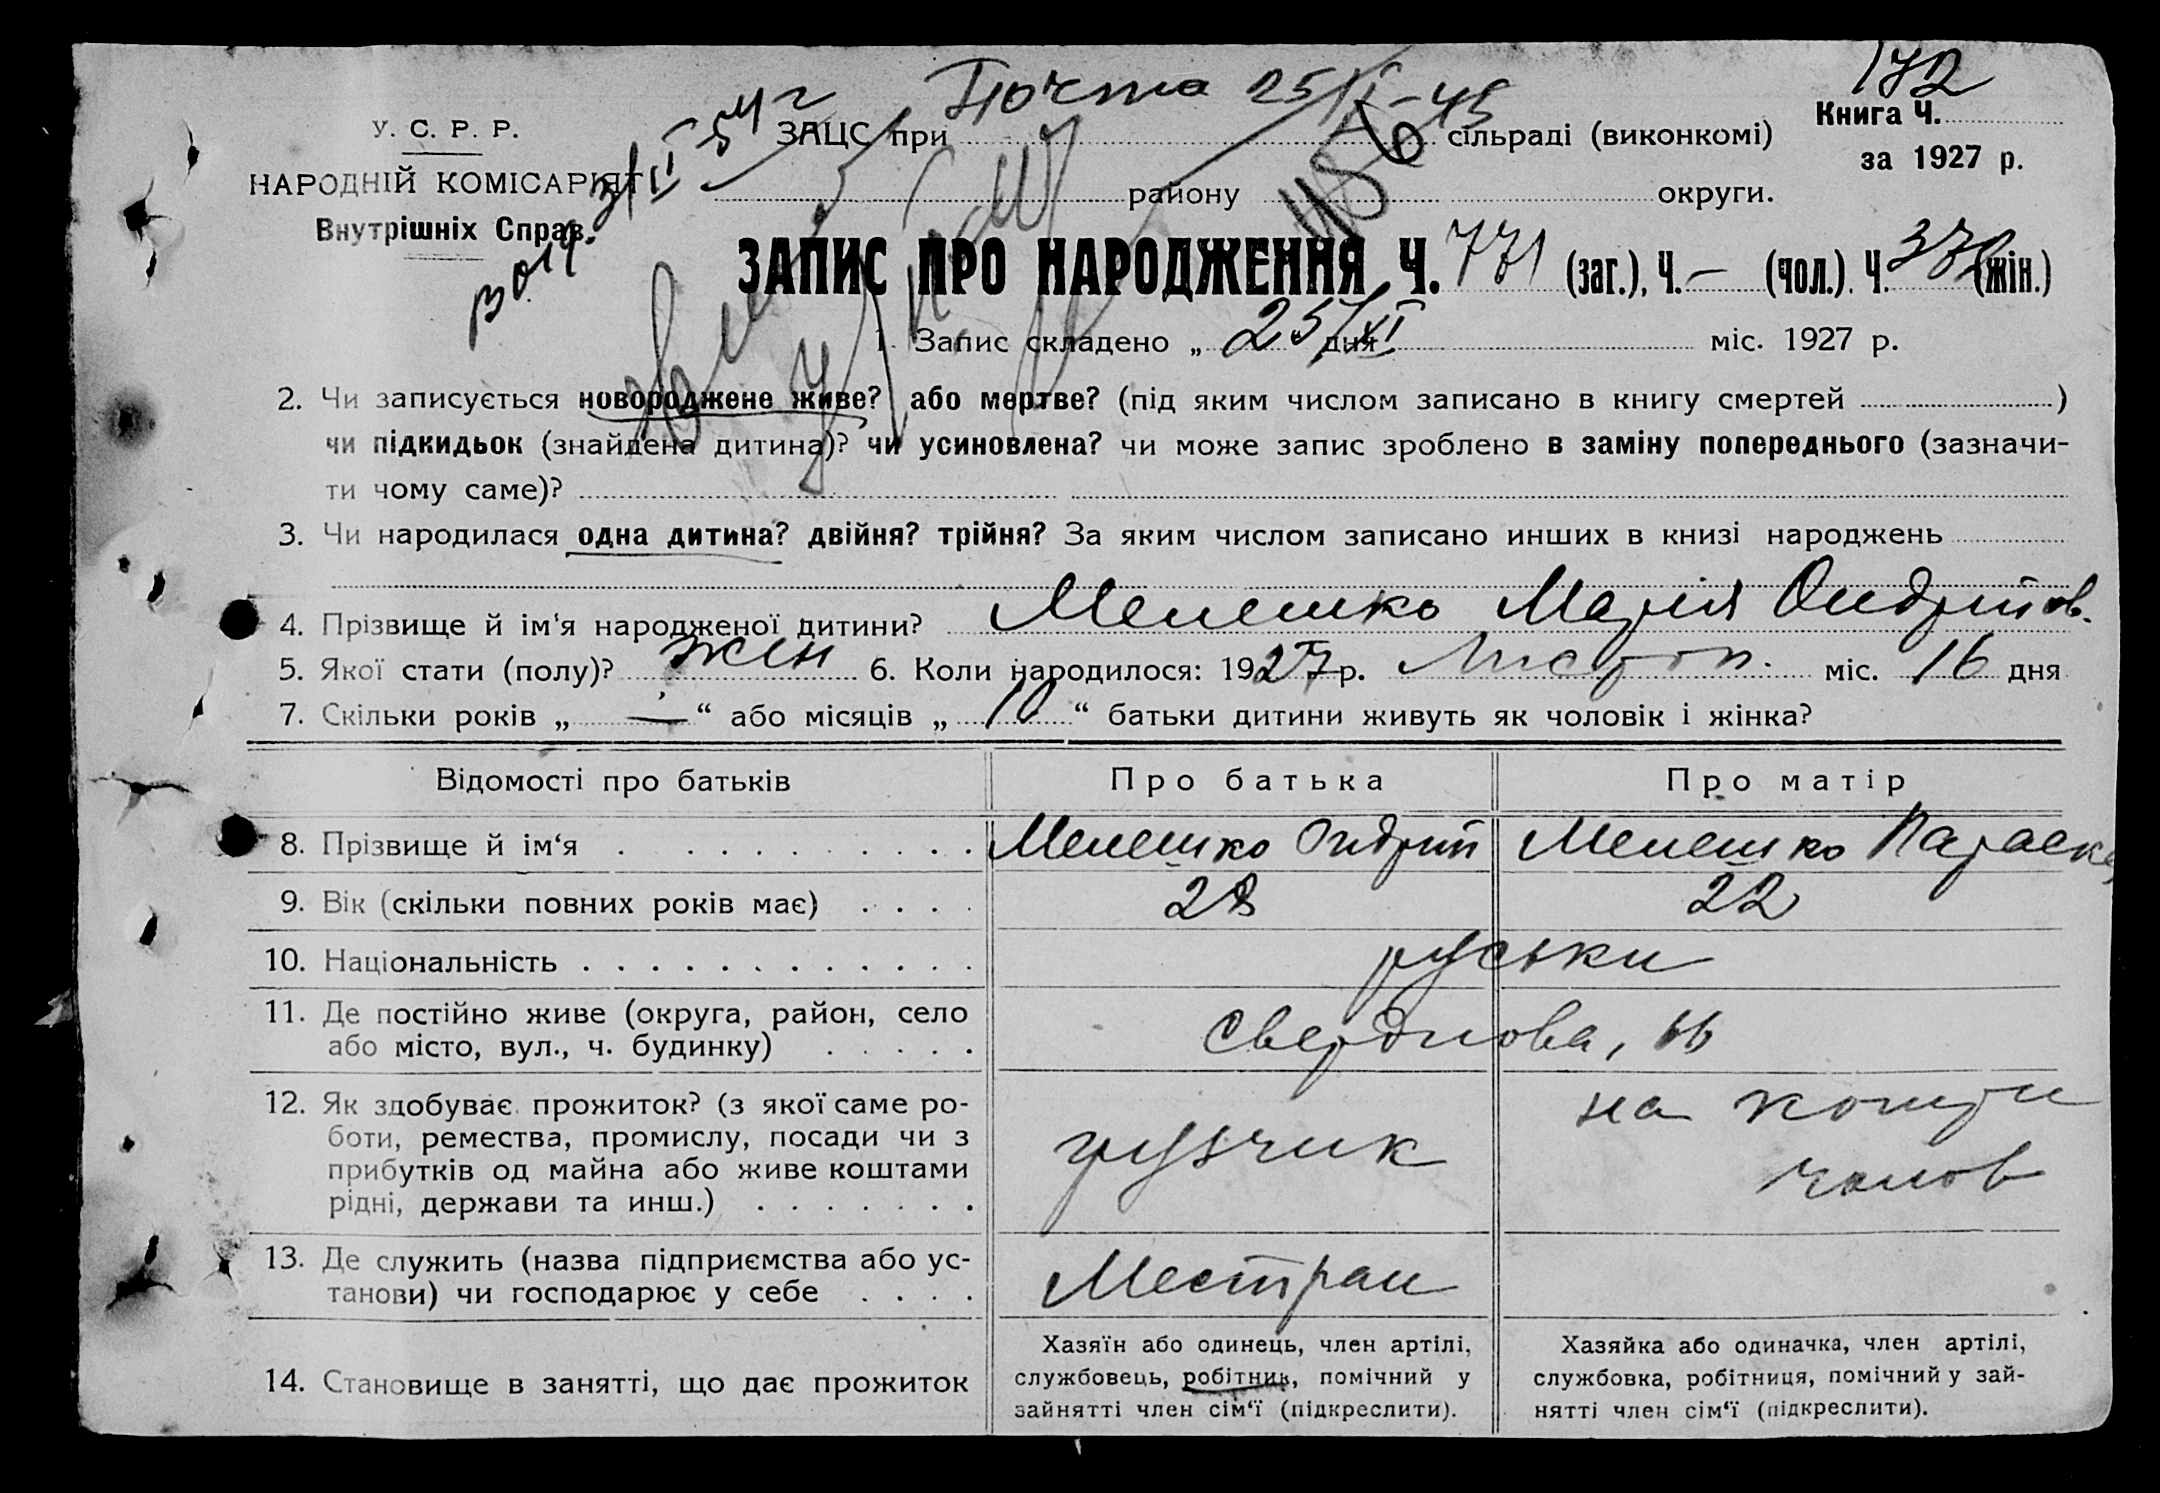 172
Почта 25/VI-45
У. С. Р. Р.
НАРОДНІЙ КОМІСАРІЯТ
Внутрішніх Справ.
ЗАЦС при сільраді (виконкомі)
Книга Ч.
за 1927 р.
району округи.
ЗАПИС ПРО НАРОДЖЕННЯ Ч. 771 (заг.), Ч. — (чол.). Ч. (жін.)
1. Запис складено „ 25/XI “ дня міс. 1927 р.
2. Чи записується новороджене живе? або мертве? (під яким числом записано в книгу смертей )
чи підкидьок (знайдена дитина)? чи усиновлена? чи може запис зроблено в заміну попереднього (зазначи-
ти чому саме)?
3. Чи народилася одна дитина? двійня? трійня? За яким числом записано инших в книзі народжень
4. Прізвище й ім'я народженої дитини? Мелешко Марія Ондріїов.
5. Якої стати (полу)? жін 6. Коли народилося: 1927 р. Листоп. міс. 16 дня
7. Скільки років „ — “ або місяців „ 10 “ батьки дитини живуть як чоловік і жінка?
Відомості про батьків Про батька Про матір
8. Прізвище й ім'я Мелешко Ондрій Мелешко Параска
9. Вік (скільки повних років має) 28 22
10. Національність руськи
11. Де постійно живе (округа, район, село
або місто, вул., ч. будинку) Свердлова, 16
12. Як здобуває прожиток? (з якої саме ро-
боти, ремества, промислу, посади чи з
прибутків од майна або живе коштами
рідні, держави та инш.) грузчик на кошти
чолов
13. Де служить (назва підприємства або ус-
танови) чи господарює у себе Местран
14. Становище в занятті, що дає прожиток
Хазяїн або одинець, член артілі,
службовець, робітник, помічний у
зайнятті член сім'ї (підкреслити).
Хазяйка або одиначка, член артілі,
службовка, робітниця, помічний у зай-
нятті член сім'ї (підкреслити).